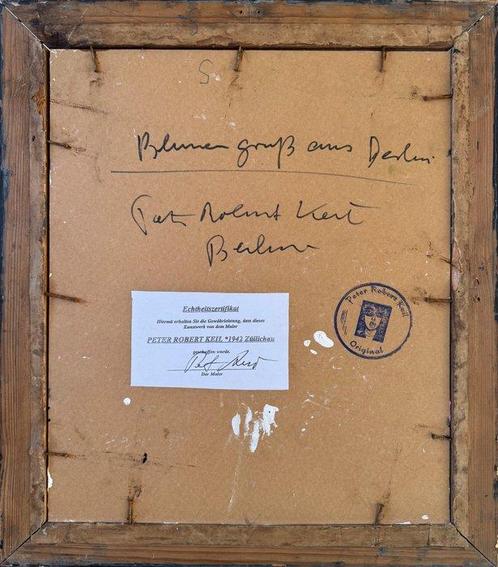 S
Blumengruß aus Berlin
Peter Robert Keil
Berlin
Echtheitszertifikat
Hiermit erhalten Sie die Gewährleistung, dass dieses
Kunstwerk von dem Maler
PETER ROBERT KEIL *1942 Züllichau
geschaffen wurde.
Der Maler
Peter Robert Keil
Original